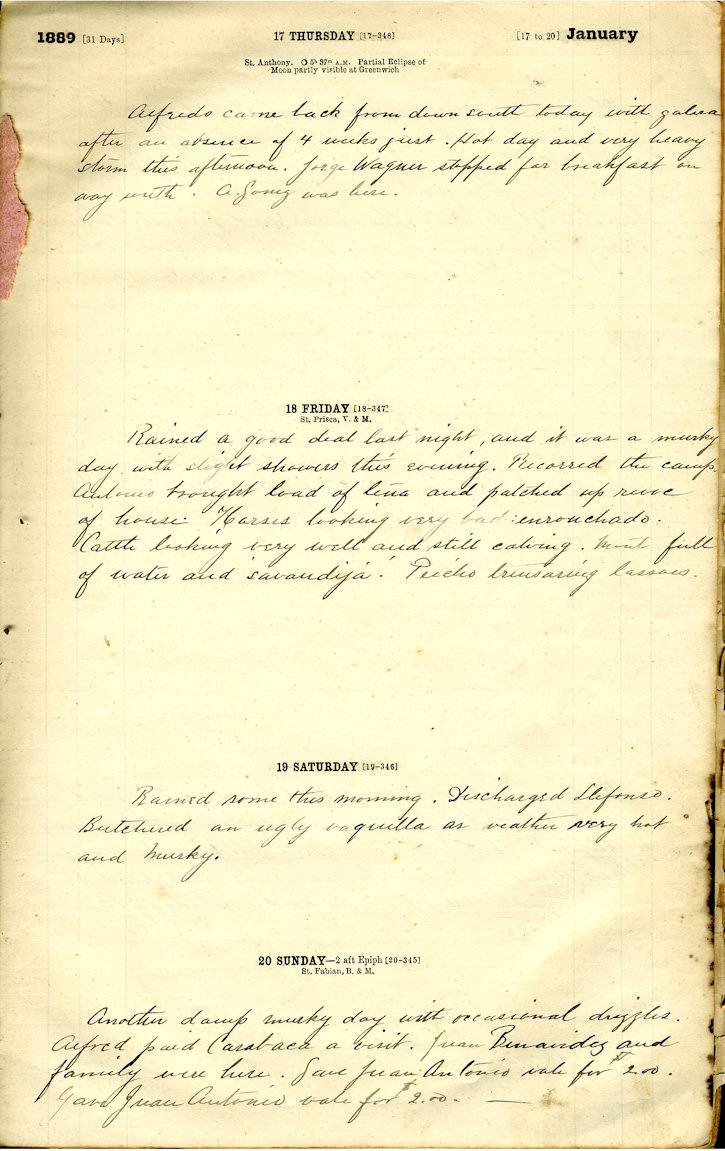 1889 [31 Days] 17 THURSDAY [17-348] [17 to 20] January
St. Anthony. O 5h 37m A.M. Partial Eclipse of
Moon partly visible at Greenwich
Alfredo came back from down south today with galera
after an absence of 4 weeks just. Hot day and very heavy
storm this afternoon. Jorge Wagner stopped for breakfast on
way north. A. Gomez was here.
18 FRIDAY [18-347]
St. Prisca, V. & M.
Rained a good deal last night, and it was a murky
day with slight showers this evening. Recorred the camp.
Antonio brought load of leña and patched up revoc
of house. Horses looking very bad: enronchado.
Cattle looking very well and still calving. Mont full
of water and 'savandija'. Pancho trensaring lassoes.
19 SATURDAY [19-346]
Rained some this morning. Discharged Ilefonso.
Butchered an ugly vaquilla as weather very hot
and murky.
20 SUNDAY—2 aft Epiph [20-345]
St. Fabian, B. & M.
Another damp murky day with occasional drizzles.
Alfred paid Carabaca a visit. Juan Benavidez and
family were here. Gave Juan Antonio vale for $2.00.
Gave Juan Antonio vale for $2.00. —